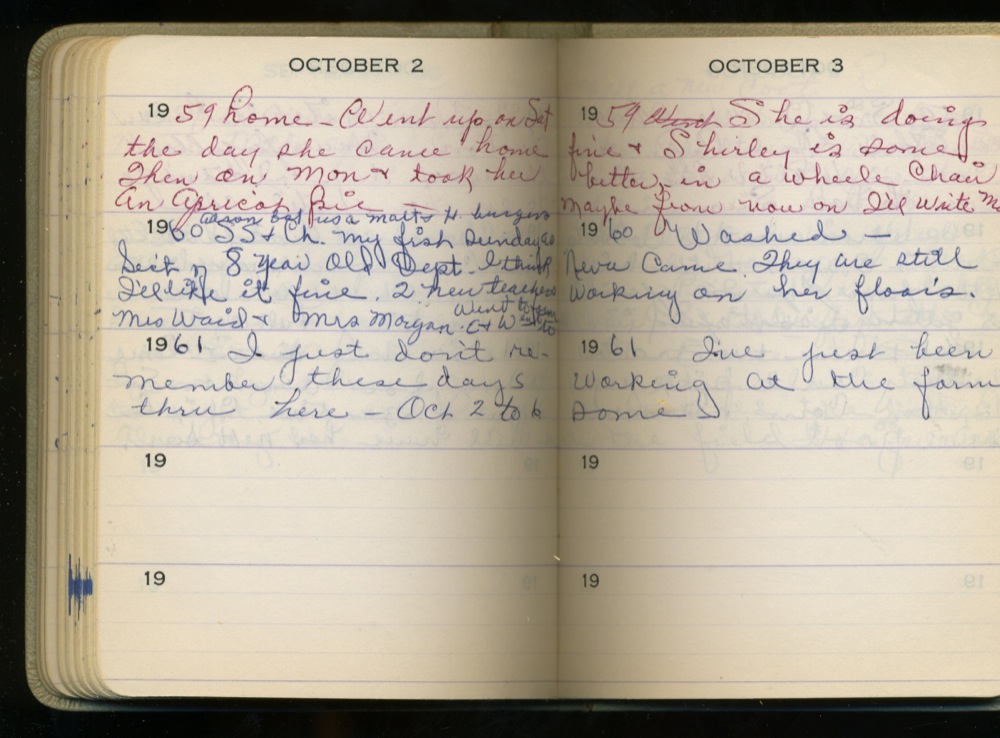 OCTOBER 2
1959 home - Went up on Sat
the day she came home
Then on Mon & took her
An Apricot Pie -
us a malts & H. burgers
1960 SS & Ch. My first Sunday as
Sect of 8 year old Dept. I think
I'll like it fine. 2 new teachers
Mrs Waid & Mrs Morgan.
1961 I just don't re-
member these days
thru here - Oct 2 to 6
19
19
OCTOBER 3
1959 She is doing
fine & Shirley is some
better - in a wheele Chair
Maybe from now on I'll write
1960 Washed -
Neva Came. They are still
working on her floors.
1961 I've just been
working at the farm
some
19
19